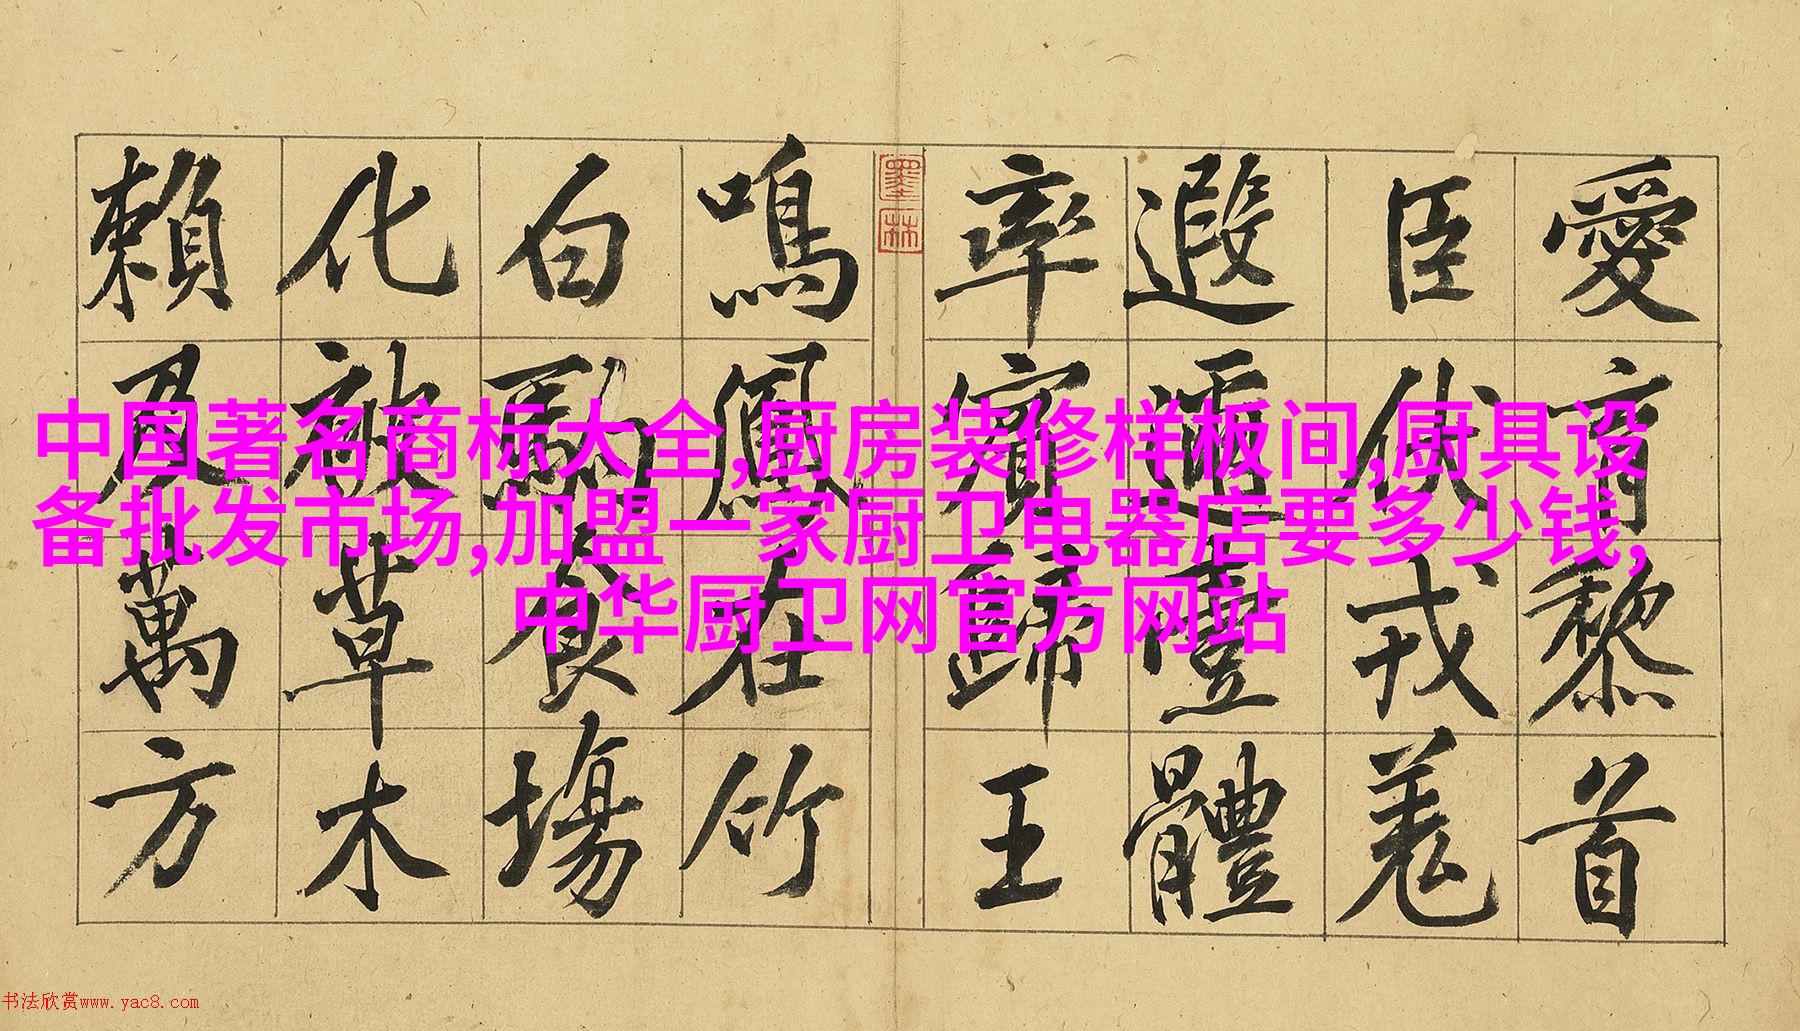 愛育黎首
臣伏戎羌
遐邇壹體
率賓歸王
墨林
鳴鳳在竹
白駒食場
化被草木
賴及萬方
中国著名商标大全,厨房装修样板间,厨具设
备批发市场,加盟一家厨卫电器店要多少钱,
中华厨卫网官方网站
书法欣赏www.yac8.com